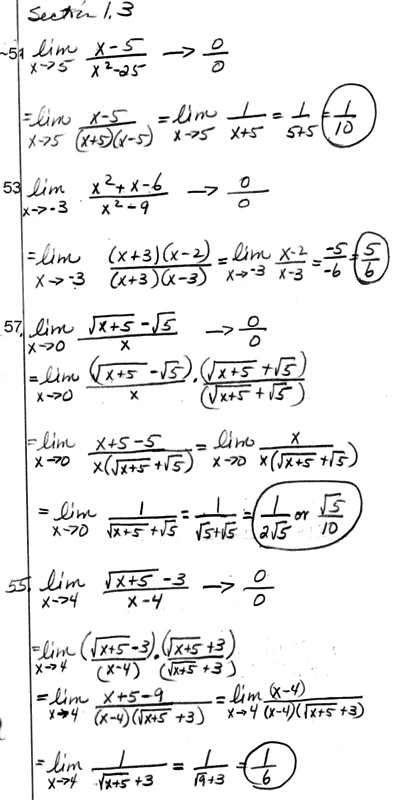 Section 1.3
51 lim x→5 (x-5)/(x²-25) → 0/0
= lim x→5 (x-5)/((x+5)(x-5)) = lim x→5 1/(x+5) = 1/(5+5) = 1/10
53 lim x→-3 (x²+x-6)/(x²-9) → 0/0
= lim x→-3 ((x+3)(x-2))/((x+3)(x-3)) = lim x→-3 (x-2)/(x-3) = -5/-6 = 5/6
57. lim x→0 (√(x+5) - √5)/x → 0/0
= lim x→0 (√(x+5) - √5)/x · (√(x+5) + √5)/(√(x+5) + √5)
= lim x→0 (x+5-5)/(x(√(x+5) + √5)) = lim x→0 x/(x(√(x+5) + √5))
= lim x→0 1/(√(x+5) + √5) = 1/(√5+√5) = 1/(2√5) or √5/10
55. lim x→4 (√(x+5) - 3)/(x-4) → 0/0
= lim x→4 (√(x+5) - 3)/(x-4) · (√(x+5) + 3)/(√(x+5) + 3)
= lim x→4 (x+5-9)/((x-4)(√(x+5) + 3)) = lim x→4 (x-4)/((x-4)(√(x+5) + 3))
= lim x→4 1/(√(x+5) + 3) = 1/(√9+3) = 1/6